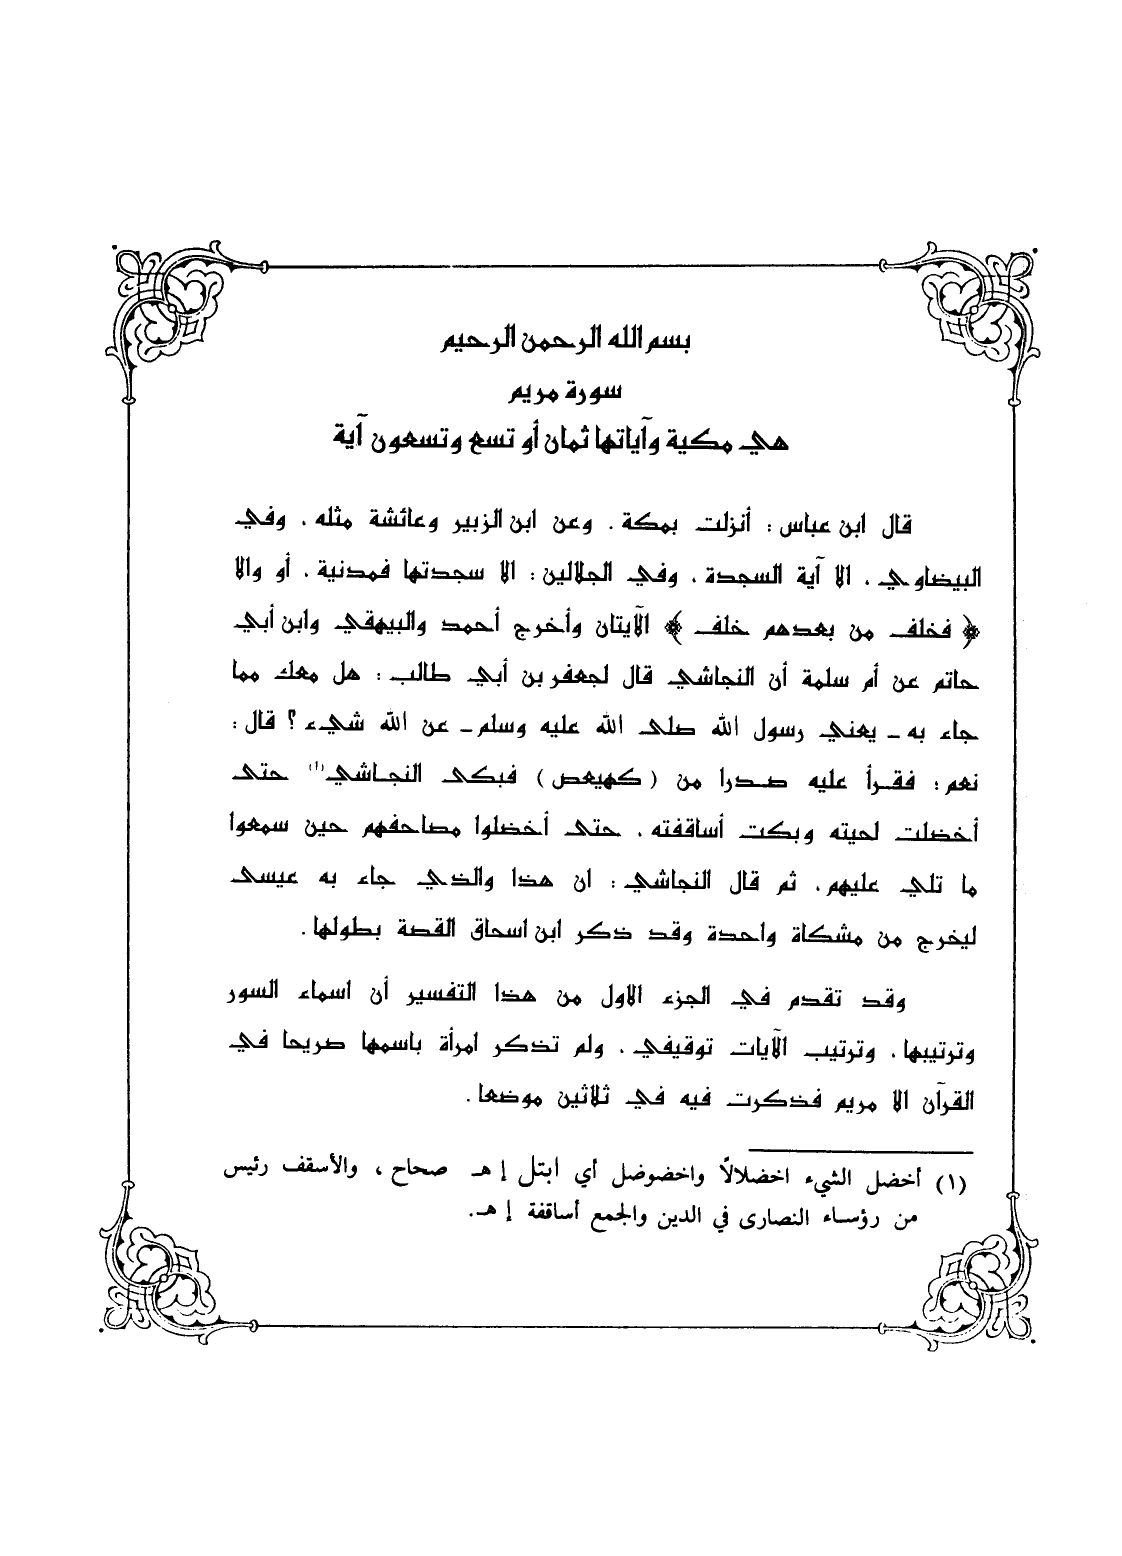 بسم الله الرحمن الرحيم
سورة مريم
هي مكية وآياتها ثمان أو تسع وتسعون آية
قال ابن عباس : أنزلت بمكة . وعن ابن الزبير وعائشة مثله ، وفي
البيضاوي ، الا آية السجدة ، وفي الجلالين : الا سجدتها فمدنية ، أو والا
﴿ فخلف من بعدهم خلف ﴾ الآيتان وأخرج أحمد والبيهقي وابن أبي
حاتم عن أم سلمة أن النجاشي قال لجعفر بن أبي طالب : هل معك مما
جاء به ـ يعني رسول الله صلى الله عليه وسلم ـ عن الله شيء ؟ قال :
نعم : فقرأ عليه صدرا من ( كهيعص ) فبكى النجاشي(١) حتى
أخضلت لحيته وبكت أساقفته ، حتى أخضلوا مصاحفهم حين سمعوا
ما تلي عليهم ، ثم قال النجاشي : ان هذا والذي جاء به عيسى
ليخرج من مشكاة واحدة وقد ذكر ابن اسحاق القصة بطولها .
وقد تقدم في الجزء الاول من هذا التفسير أن اسماء السور
وترتيبها ، وترتيب الآيات توقيفي ، ولم تذكر امرأة باسمها صريحا في
القرآن الا مريم فذكرت فيه في ثلاثين موضعا .
(١) أخضل الشيء اخضلالاً واخضوضل أي ابتل إ هـ صحاح ، والأسقف رئيس
من رؤساء النصارى في الدين والجمع أساقفة إ هـ.